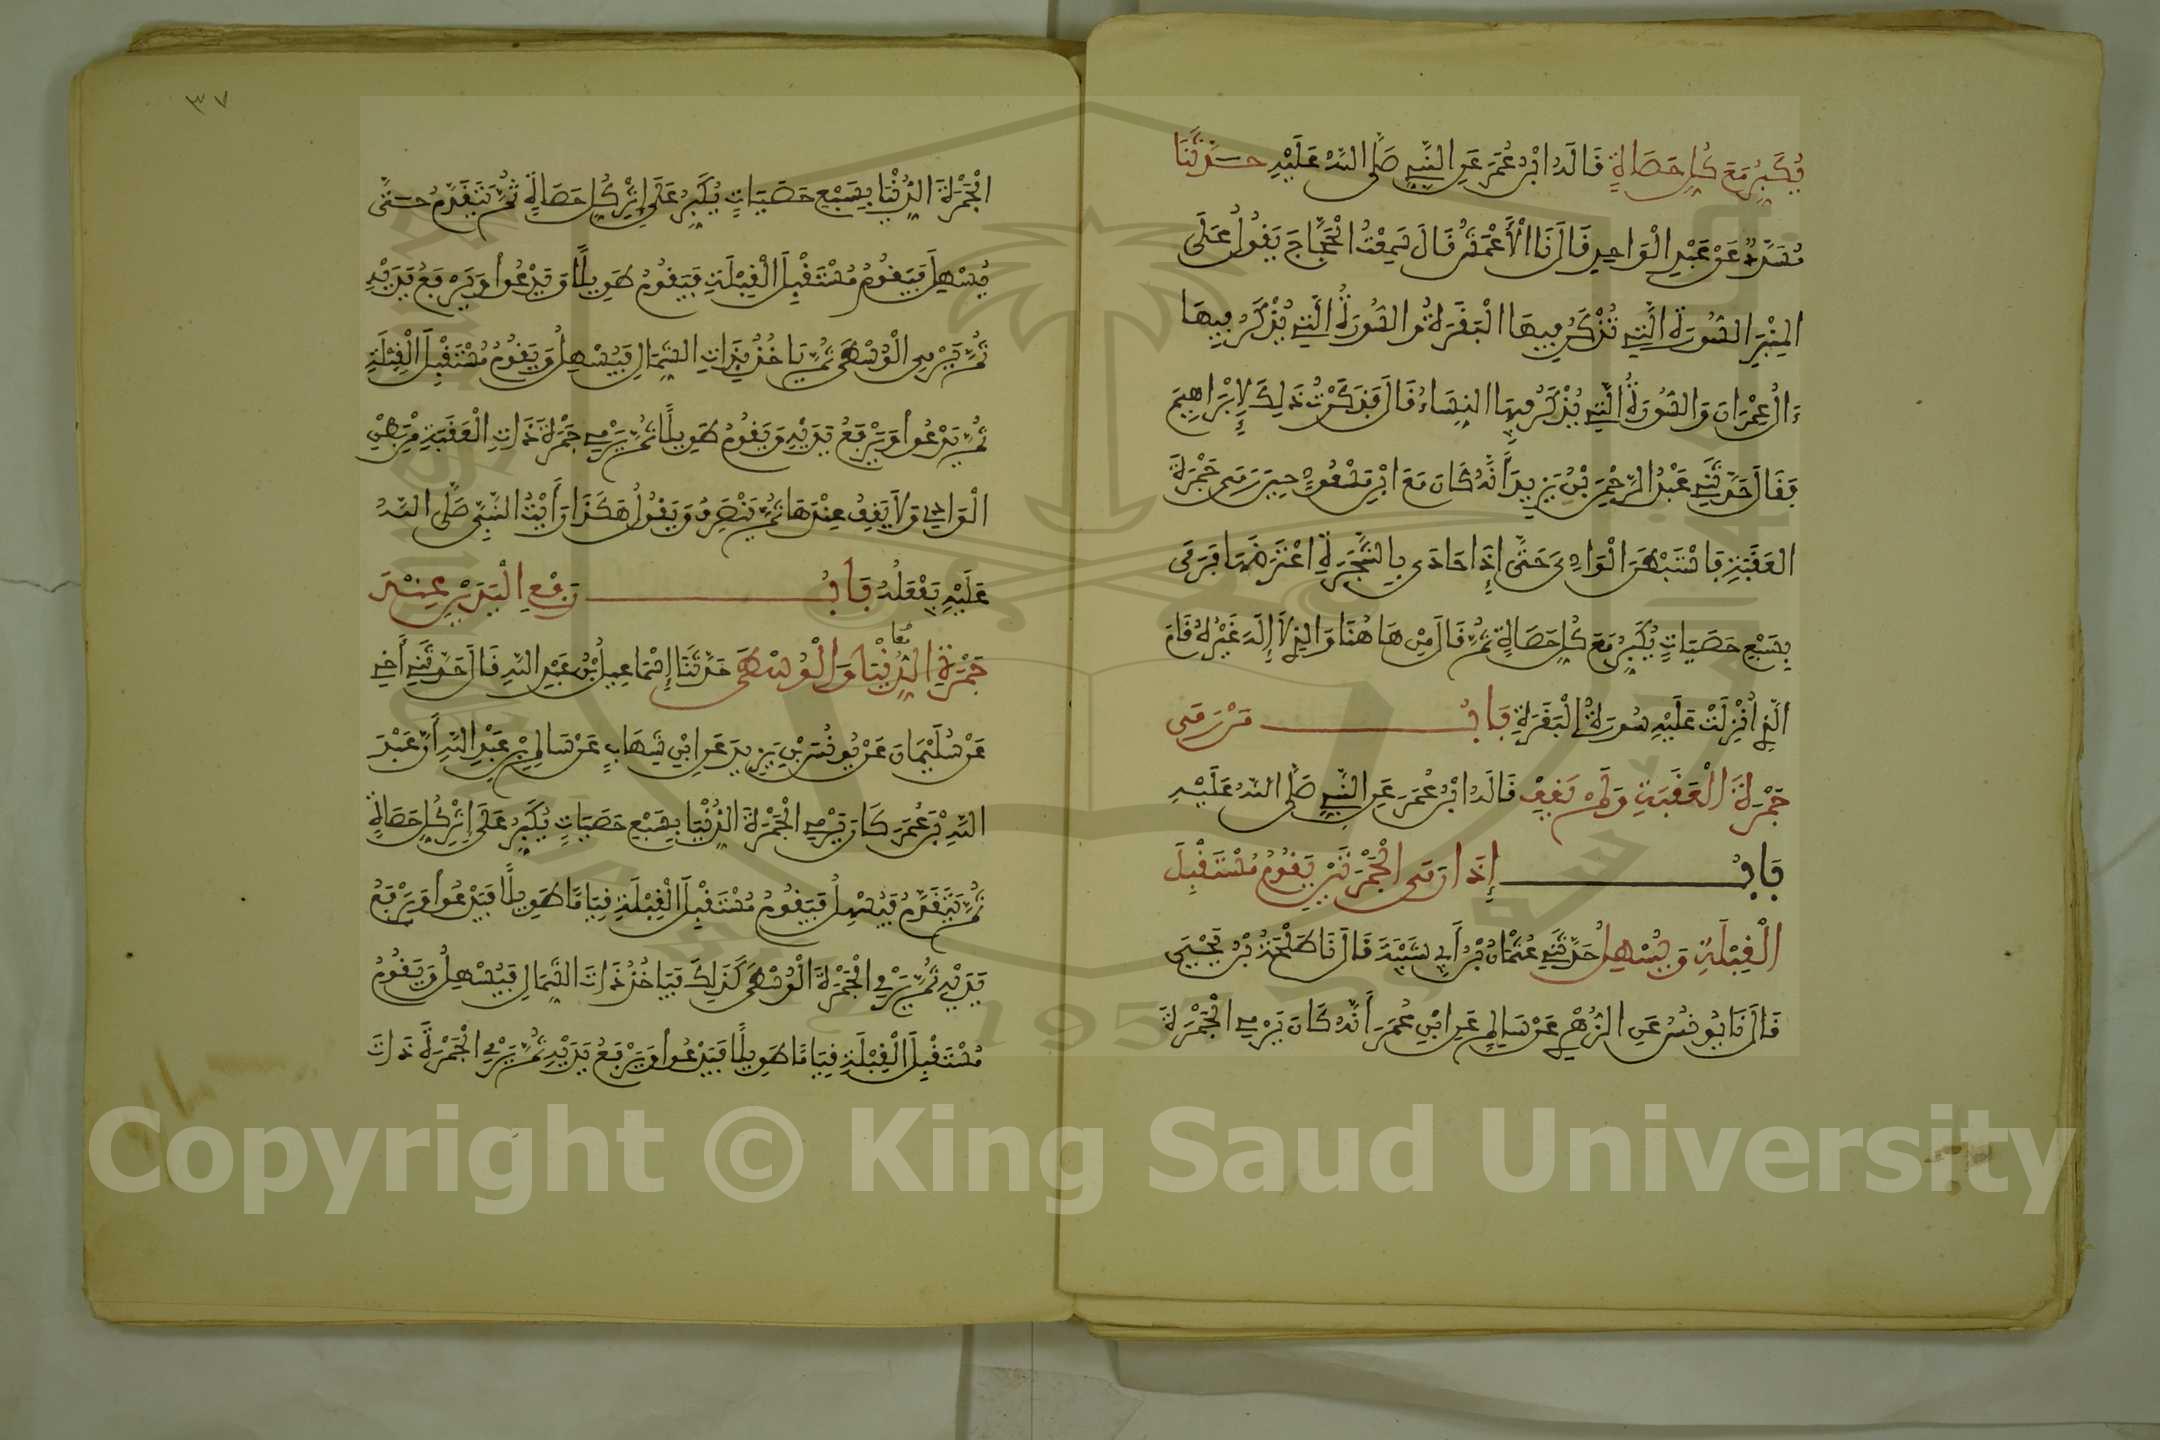 يُكَبِّرُ مَعَ كُلِّ حَصَاةٍ قَالَهُ ابْنُ عُمَرَ عَنِ النَّبِيِّ صَلَّى اللَّهُ عَلَيْهِ حَدَّثَنَا
مُسَدَّدٌ عَنْ عَبْدِ الْوَاحِدِ قَالَ نَا الْأَعْمَشُ قَالَ سَمِعْتُ الْحَجَّاجَ يَقُولُ عَلَى
الْمِنْبَرِ السُّورَةُ الَّتِي تُذْكَرُ فِيهَا الْبَقَرَةُ وَالسُّورَةُ الَّتِي يُذْكَرُ فِيهَا
ءَالُ عِمْرَانَ وَالسُّورَةُ الَّتِي يُذْكَرُ فِيهَا النِّسَاءُ قَالَ فَذَكَرْتُ ذَلِكَ لِإِبْرَاهِيمَ
فَقَالَ حَدَّثَنِي عَبْدُ الرَّحْمَنِ بْنُ يَزِيدَ أَنَّهُ كَانَ مَعَ ابْنِ مَسْعُودٍ حِينَ رَمَى جَمْرَةَ
الْعَقَبَةِ فَاسْتَبْطَنَ الْوَادِيَ حَتَّى إِذَا حَاذَى بِالشَّجَرَةِ اعْتَرَضَهَا فَرَمَى
بِسَبْعِ حَصَيَاتٍ يُكَبِّرُ مَعَ كُلِّ حَصَاةٍ ثُمَّ قَالَ مِنْ هَاهُنَا وَالَّذِي لَا إِلَهَ غَيْرُهُ قَامَ
الَّذِي أُنْزِلَتْ عَلَيْهِ سُورَةُ الْبَقَرَةِ بَابُ مَنْ رَمَى
جَمْرَةَ الْعَقَبَةِ وَلَمْ يَقِفْ قَالَهُ ابْنُ عُمَرَ عَنِ النَّبِيِّ صَلَّى اللَّهُ عَلَيْهِ
بَابُ إِذَا رَمَى الْجَمْرَتَيْنِ يَقُومُ مُسْتَقْبِلَ
الْقِبْلَةِ وَيُسْهِلُ حَدَّثَنِي عُثْمَانُ بْنُ أَبِي شَيْبَةَ قَالَ نَا طَلْحَةُ بْنُ يَحْيَى
قَالَ نَا يُونُسُ عَنِ الزُّهْرِيِّ عَنْ سَالِمٍ عَنِ ابْنِ عُمَرَ أَنَّهُ كَانَ يَرْمِي الْجَمْرَةَ
٣٧
الْجَمْرَةَ الدُّنْيَا بِسَبْعِ حَصَيَاتٍ يُكَبِّرُ عَلَى إِثْرِ كُلِّ حَصَاةٍ ثُمَّ يَتَقَدَّمُ حَتَّى
يُسْهِلَ فَيَقُومُ مُسْتَقْبِلَ الْقِبْلَةِ فَيَقُومُ طَوِيلًا وَيَدْعُوا وَيَرْفَعُ يَدَيْهِ
ثُمَّ يَرْمِي الْوُسْطَى ثُمَّ يَاخُذُ بِذَاتِ الشِّمَالِ فَيُسْهِلُ وَيَقُومُ مُسْتَقْبِلَ الْقِبْلَةِ
ثُمَّ يَدْعُوا وَيَرْفَعُ يَدَيْهِ وَيَقُومُ طَوِيلًا ثُمَّ يَرْمِي جَمْرَةَ ذَاتِ الْعَقَبَةِ مِنْ بَطْنِ
الْوَادِي وَلَا يَقِفُ عِنْدَهَا ثُمَّ يَنْصَرِفُ وَيَقُولُ هَكَذَا رَأَيْتُ النَّبِيَّ صَلَّى اللَّهُ
عَلَيْهِ يَفْعَلُهُ بَابُ رَفْعِ الْيَدَيْنِ عِنْدَ
معا
جَمْرَةِ الدُّنْيَا وَالْوُسْطَى حَدَّثَنَا إِسْمَاعِيلُ بْنُ عَبْدِ اللَّهِ قَالَ حَدَّثَنِي أَخِي
عَنْ سُلَيْمَانَ عَنْ يُونُسَ بْنِ يَزِيدَ عَنِ ابْنِ شِهَابٍ عَنْ سَالِمِ بْنِ عَبْدِ اللَّهِ أَنَّ عَبْدَ
اللَّهِ بْنَ عُمَرَ كَانَ يَرْمِي الْجَمْرَةَ الدُّنْيَا بِسَبْعِ حَصَيَاتٍ يُكَبِّرُ عَلَى إِثْرِ كُلِّ حَصَاةٍ
ثُمَّ يَتَقَدَّمُ فَيُسْهِلُ فَيَقُومُ مُسْتَقْبِلَ الْقِبْلَةِ قِيَامًا طَوِيلًا فَيَدْعُوا وَيَرْفَعُ
يَدَيْهِ ثُمَّ يَرْمِي الْجَمْرَةَ الْوُسْطَى كَذَلِكَ فَيَاخُذُ ذَاتَ الشِّمَالِ فَيُسْهِلُ وَيَقُومُ
مُسْتَقْبِلَ الْقِبْلَةِ قِيَامًا طَوِيلًا فَيَدْعُوا وَيَرْفَعُ يَدَيْهِ ثُمَّ يَرْمِي الْجَمْرَةَ ذَاتَ
Copyright © King Saud University
1957